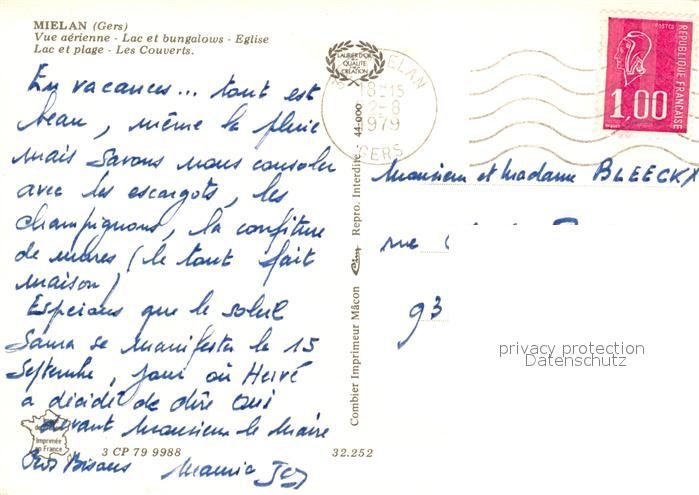 MIELAN (Gers)
Vue aérienne - Lac et bungalows - Eglise
Lac et plage - Les Couverts.
En vacances... tout est
beau, même la pluie
mais savons nous consoler
avec les escargots, les
champignons, la confiture
de mures (le tout fait
maison)
Espérons que le soleil
saura se manifester le 15
Septembre, jour où Hervé
a décidé de dire oui
devant Monsieur le Maire
Gros Bisous Mamie
Imprimée
en France
3 CP 79 9988
32.252
Combier Imprimeur Mâcon Cim Repro. Interdite 44-000
LABEL D'OR
QUALITÉ
CRÉATION
MIELAN
18-15
2-8
1979
GERS
POSTES
RÉPUBLIQUE FRANÇAISE
1,00
Monsieur et Madame BLEECKX
rue
93
privacy protection
Datenschutz